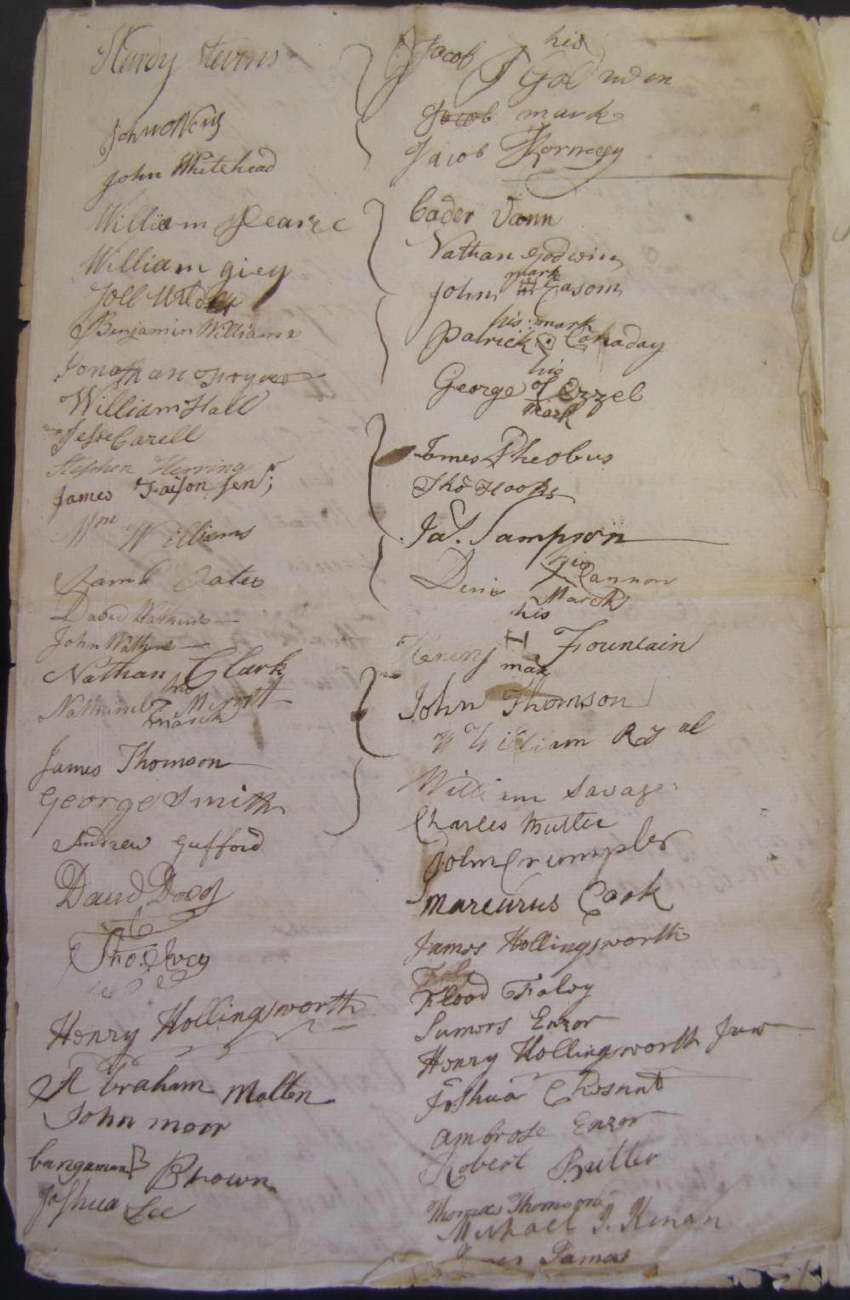 Hardy Stevens
John
John Whitehead
William
William
Benjamin Williams
Jonathan
William Hall
Jesse Carell
Stephen Herring
James Faison Senr;
Wm Williams
David Watkins
John Watkins
Nathan Clark
his
Nathaniel Merritt
mark
James Thomson
George Smith
Andrew Gufford
David Dodd
Tho. Ivey
Henry Hollingsworth
Abraham Molten
John moor
bangaman B Brown
Joshua Lee
his
Jacob
Jacob mark
Jacob Kornegy
Cader Vann
Nathan Godwin
mark
John Casom
his mark
Patrick Canaday
his
George Ezzel
mark
James Pheobus
Tho Hooks
Jas. Sampson
his
Cannon
Marck
his
Henry H Fountain
mark
John Thomson
William Royal
William Savage
Charles Butler
John Crumpler
Marcurus Cook
James Hollingsworth
Flood Foley
Sumors Enzor
Henry Hollingsworth Junr
Joshua Chesnut
Ambrose Enzor
Robert Butler
Thomas Thomson
Michael J. Kenan
James